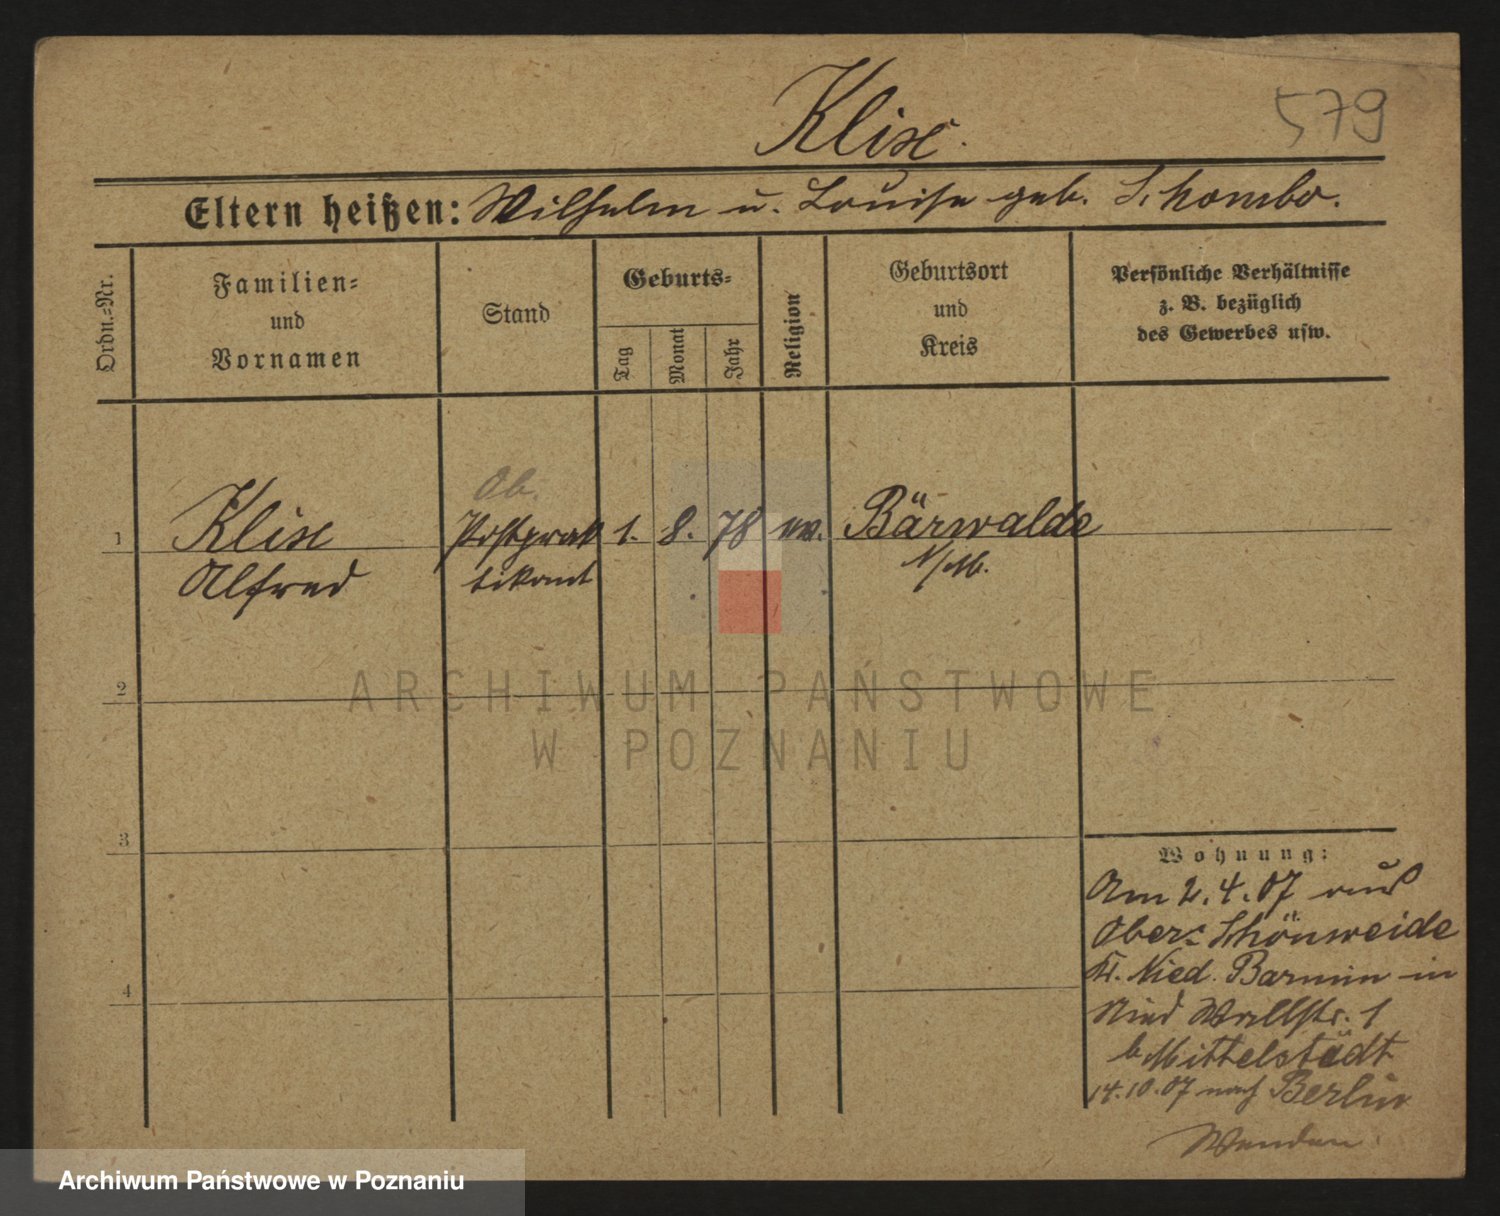 579
Klix.
Eltern heißen: Wilhelm u. Louise geb. Schombo.
Ordn.=Nr.
Familien=
und
Vornamen
Stand
Geburts=
Tag
Monat
Jahr
Religion
Geburtsort
und
Kreis
Persönliche Verhältnisse
z. B. bezüglich
des Gewerbes usw.
Ob.
1 Klix Postprak 1. 8. 78 ev. Bärwalde
Alfred tikant N/M.
2
ARCHIWUM PAŃSTWOWE
W POZNANIU
3
Wohnung:
Am 2.4.07 aus
Ober= Schönweide
Kr. Nied. Barnim in
Wallstr. 1
b Mittelstädt
14.10.07 nach Berlin
Wenden.
4
Archiwum Państwowe w Poznaniu